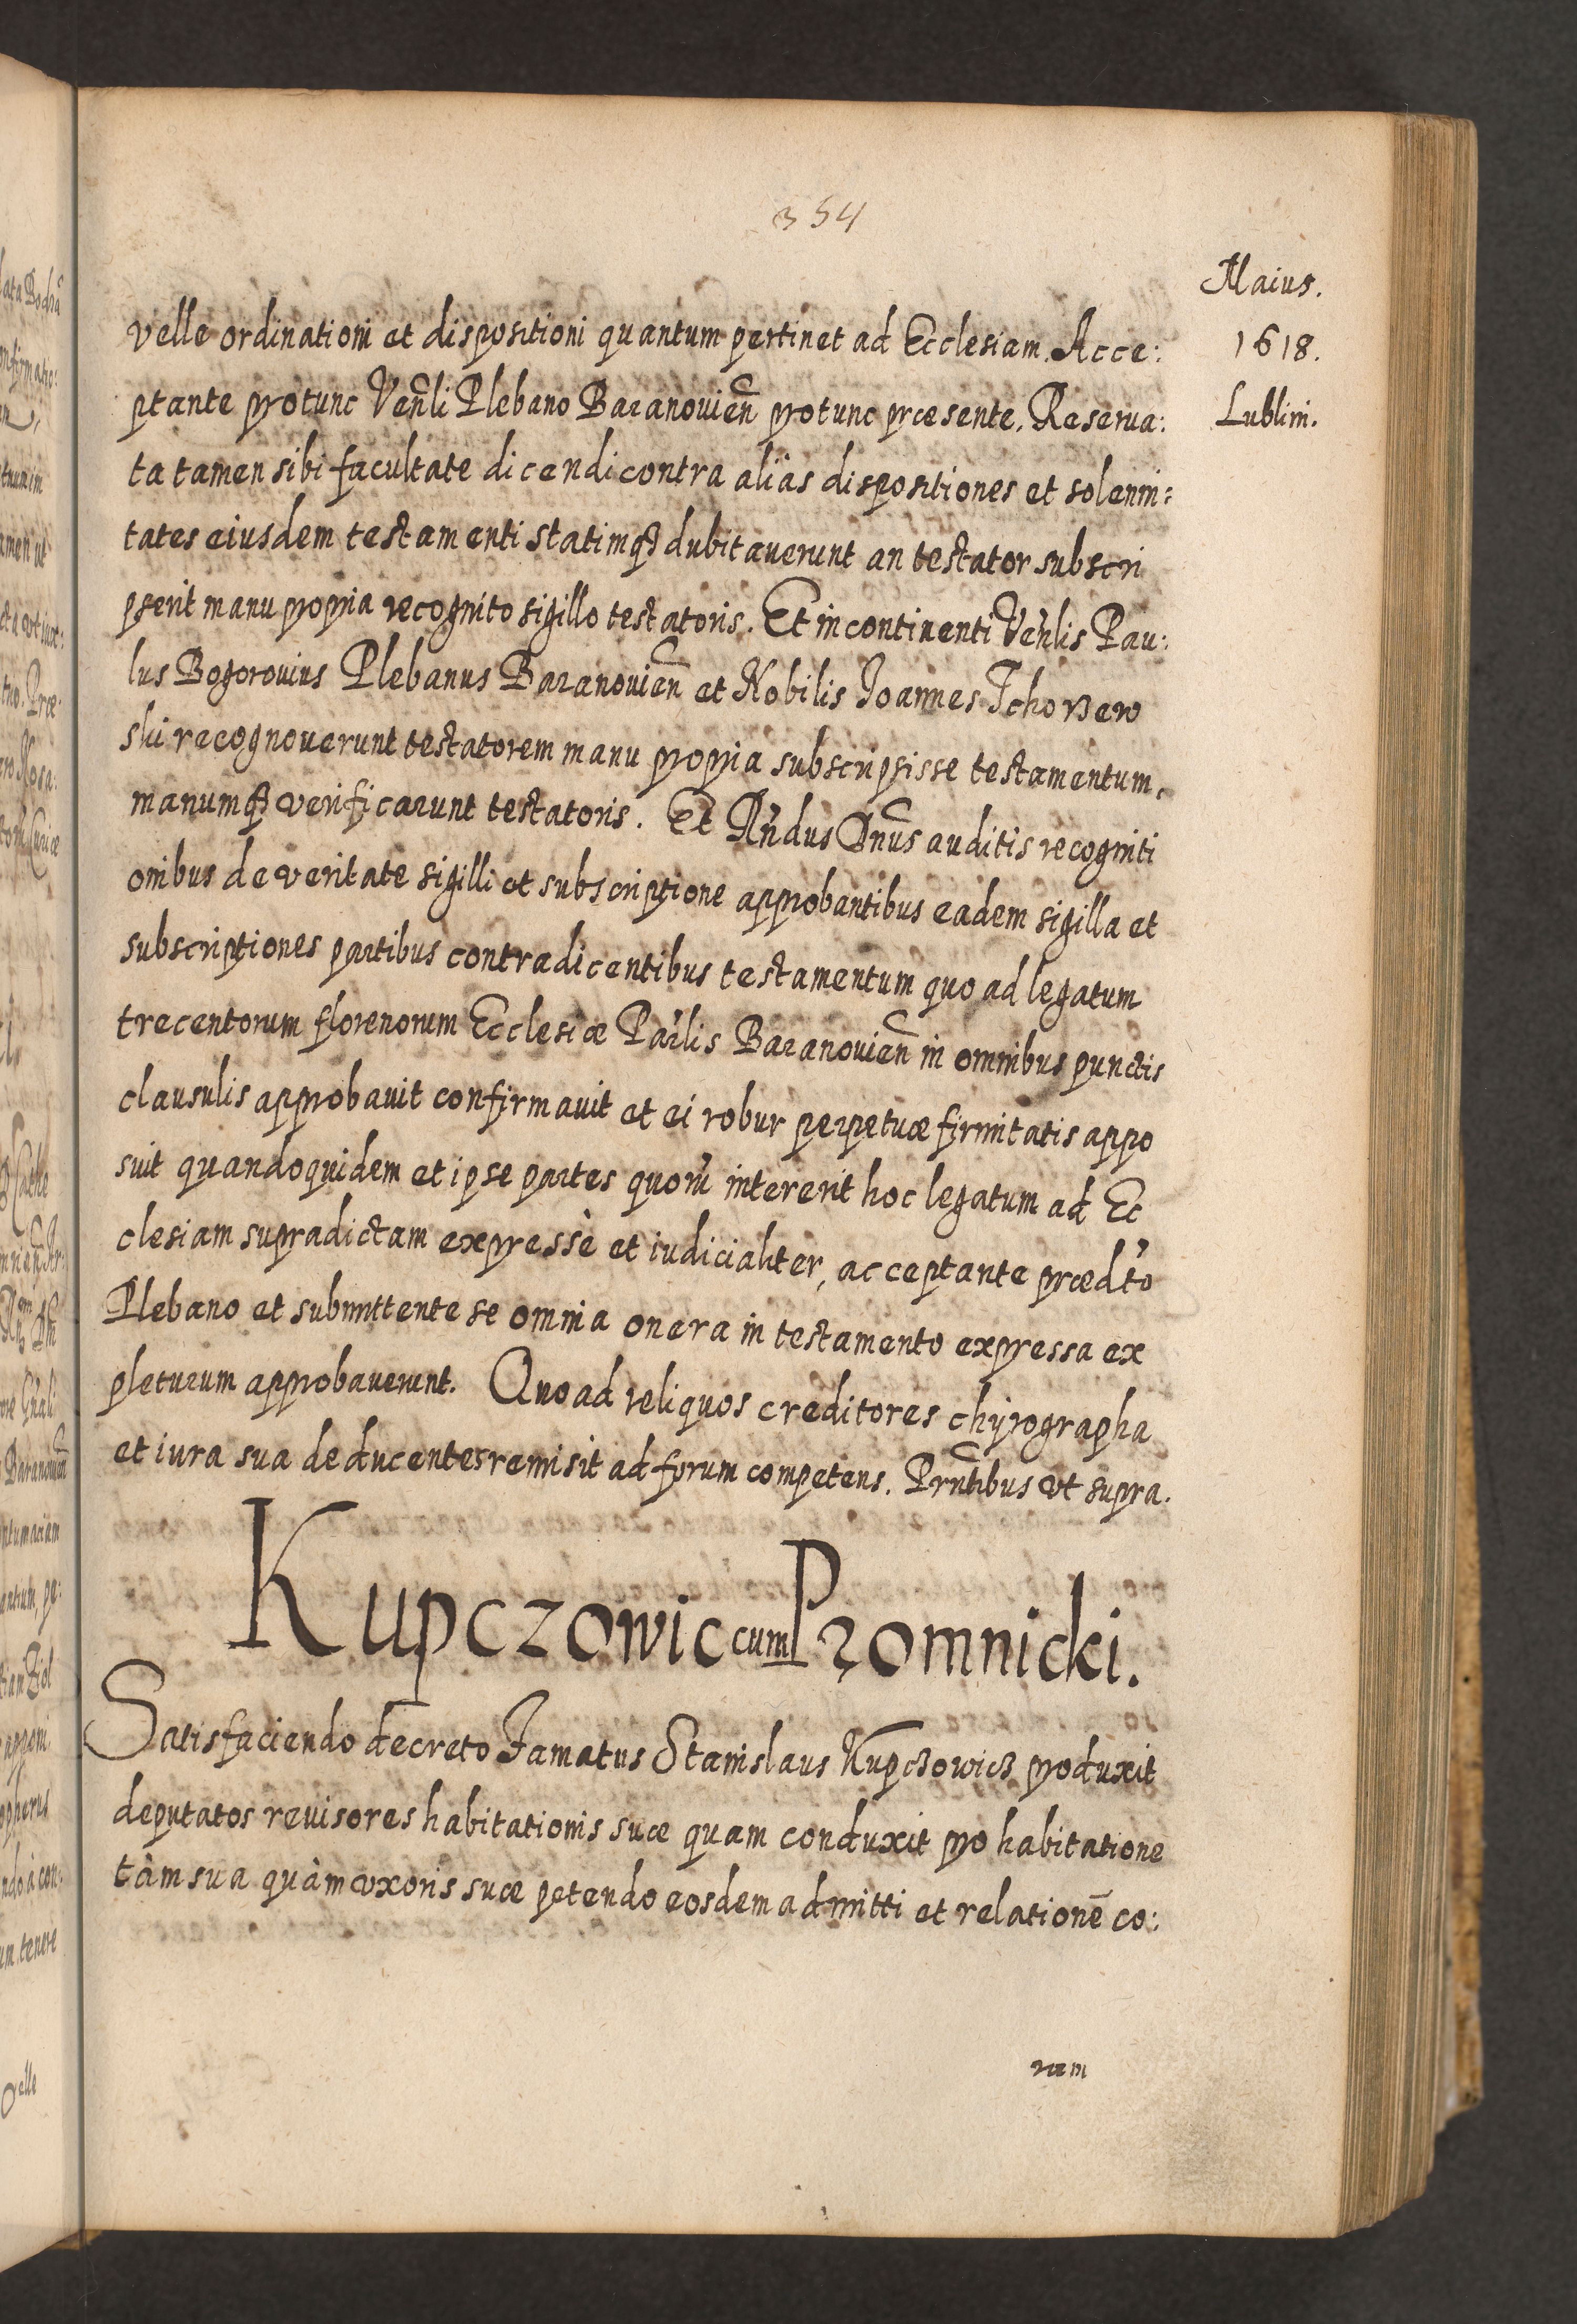 354
Maius.
1618.
Lublini.
velle ordinationi et dispositioni quantum pertinet ad Ecclesiam. Acce:
ptante protunc Venli Plebano Baranovien protunc præsente. Reserua:
ta tamen sibi facultate dicendi contra alias dispositiones et solenni:
tates eiusdem testamenti statimq3 dubitauerunt an testator subscri
pserit manu propria recognito sigillo testatoris. Et in continenti Venlis Pau:
lus Bogorouius Plebanus Baranouien et Nobilis Joannes Tchorzew
ski recognouerunt testatorem manu propria subscripsisse testamentum,
manumq3 verificarunt testatoris. Et Rndus Dnus auditis recogniti
onibus de veritate sigilli et subscriptione approbantibus eadem sigilla et
subscriptiones partibus contradicentibus testamentum quo ad legatum
trecentorum florenorum Ecclesiæ Parlis Baranouien in omnibus punctis
clausulis approbauit confirmauit et ei robur perpetuæ firmitatis appo
suit quandoquidem et ipse partes quoru intererit hoc legatum ad Ec
clesiam supradictam expressè et iudicialiter, acceptante prædto
Plebano et submittente se omnia onera in testamento expressa ex
pleturum approbauerunt. Quo ad reliquos creditores chyrographa
et iura sua deducentes remisit ad forum competens. Prntibus vt supra.
Kupczowic cum Promnicki.
Satisfaciendo decreto Famatus Stanislaus Kupczowicz produxit
deputatos reuisores habitationis suæ quam conduxit pro habitatione
tàm sua quàm vxoris suæ petendo eosdem admitti et relationē eo:
rum